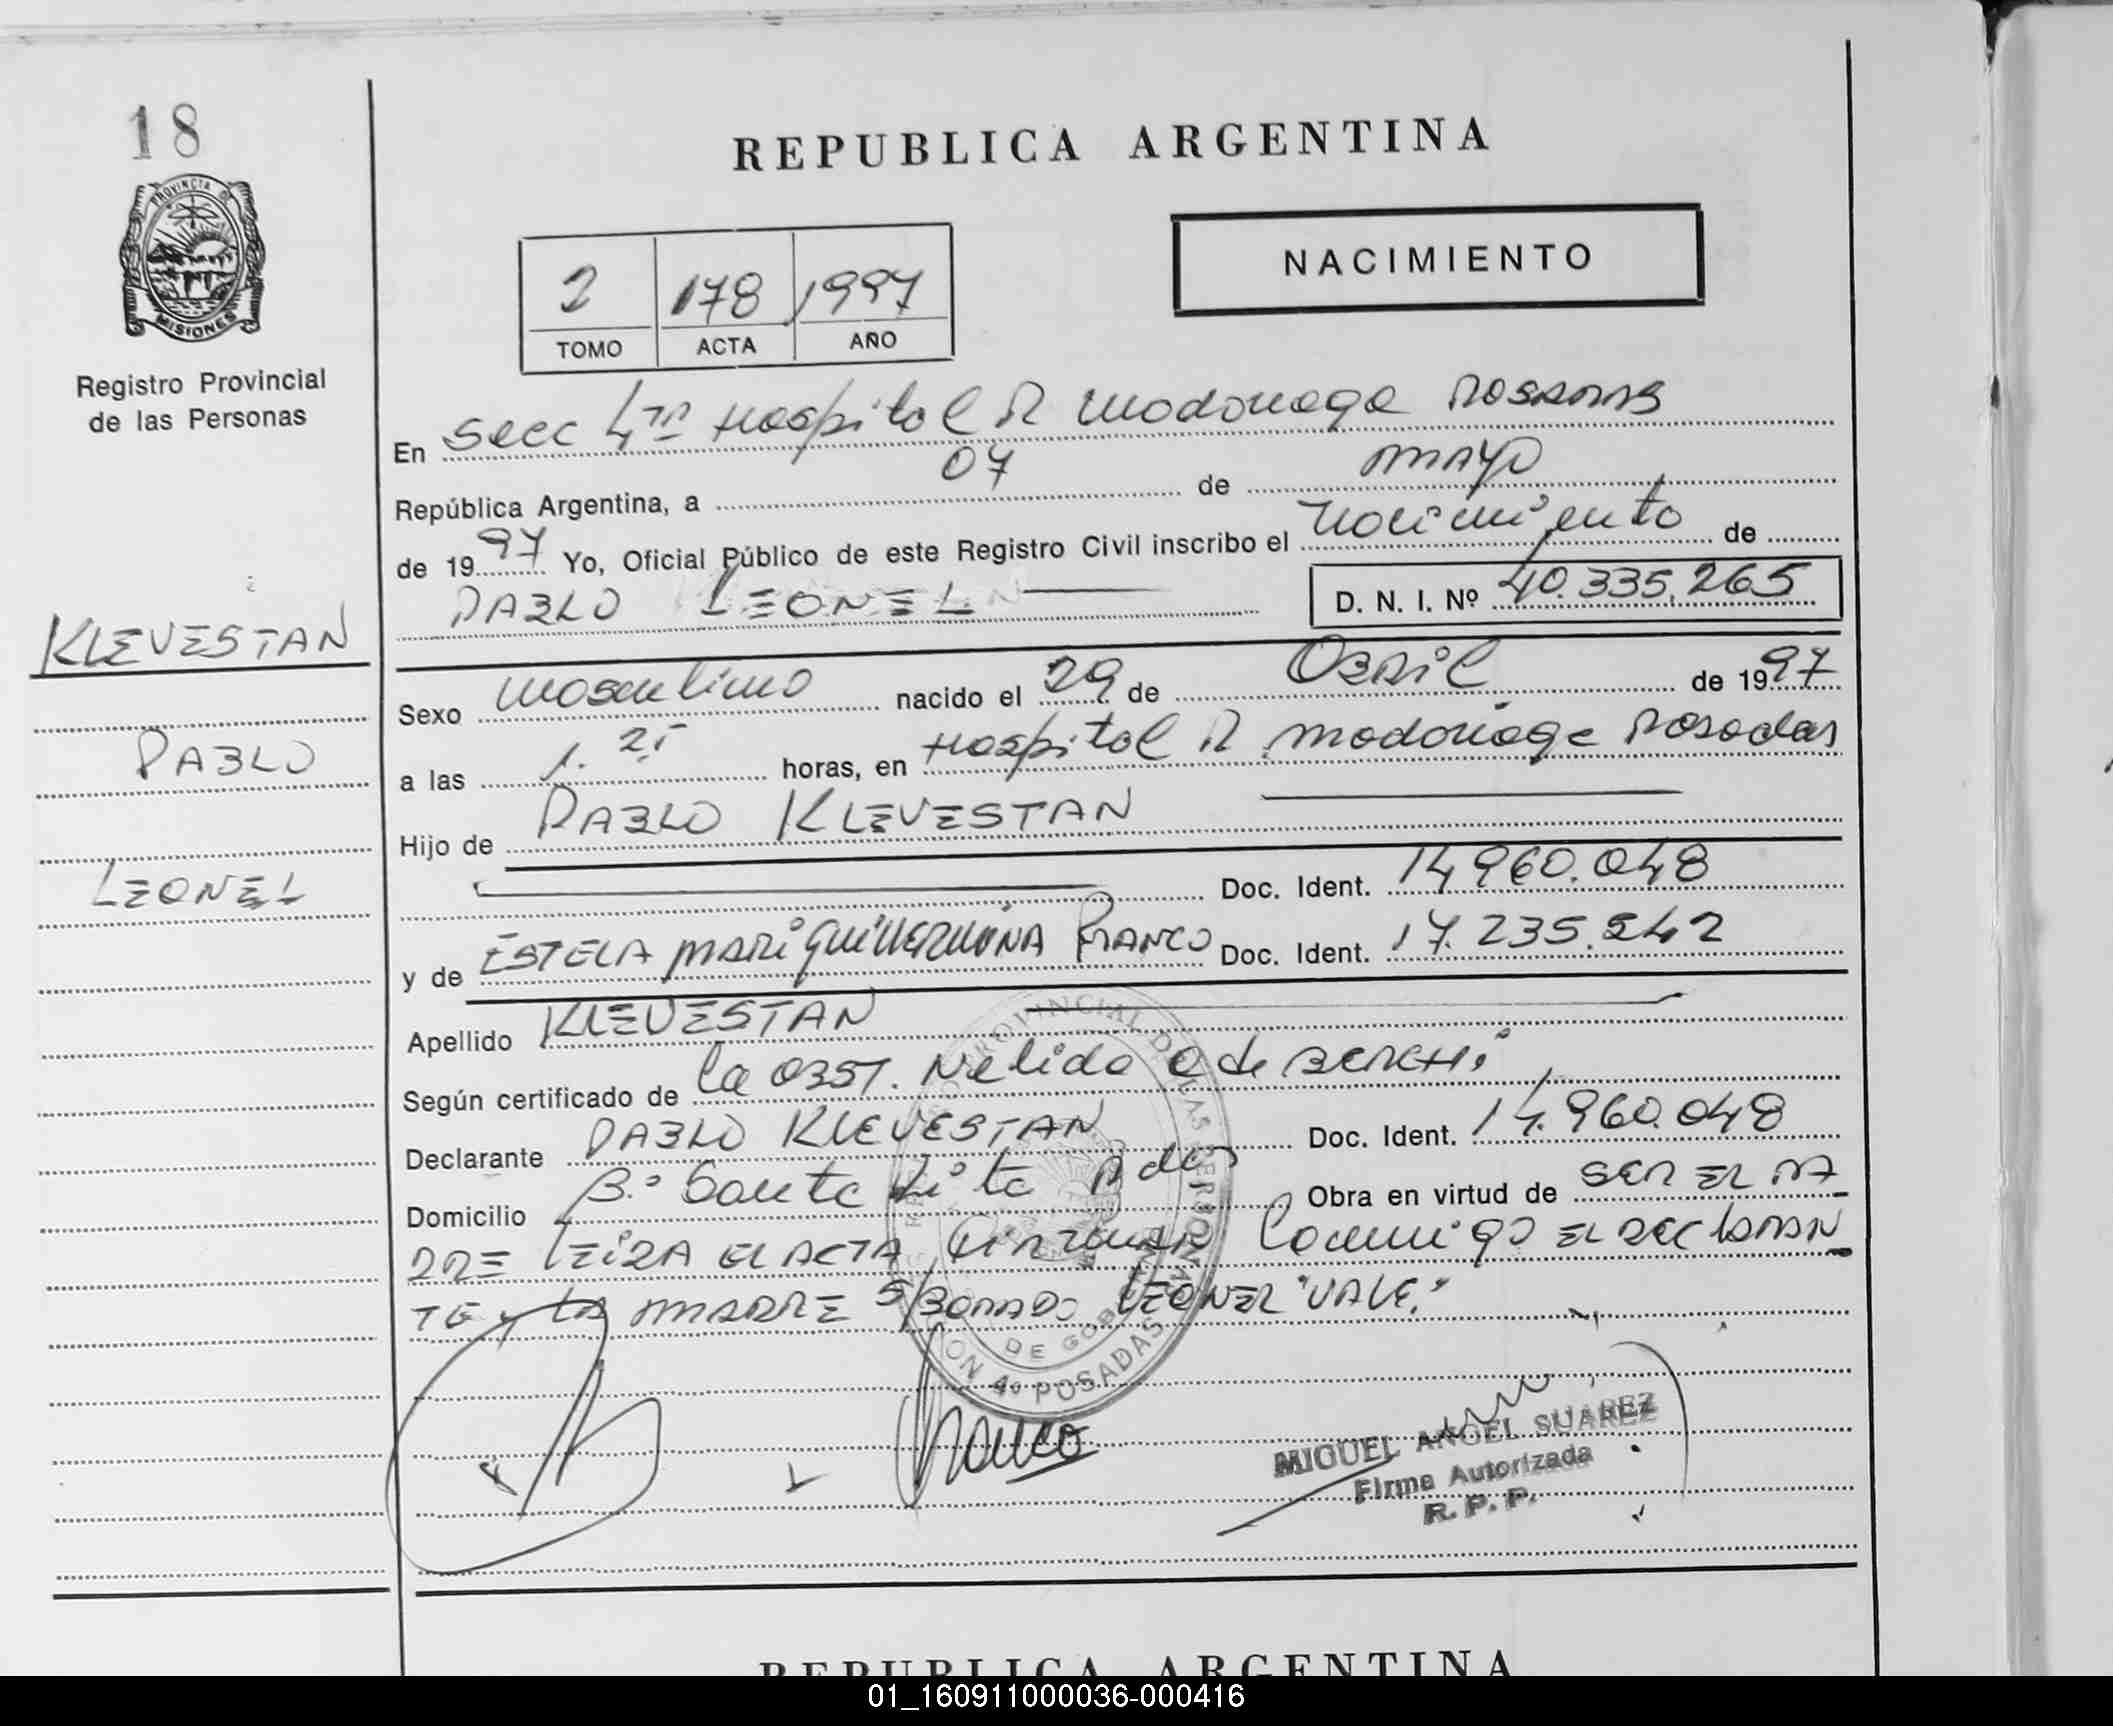 18
PROVINCIA DE
MISIONES
Registro Provincial
de las Personas
REPUBLICA ARGENTINA
NACIMIENTO
2 178 1997
TOMO ACTA AÑO
En Secc 4ta Hospital R Madariaga Posadas
República Argentina, a 07 de mayo
de 1997 Yo, Oficial Público de este Registro Civil inscribo el nacimiento de
PABLO LEONEL D. N. I. Nº 40.335.265
KLEVESTAN
PABLO
LEONEL
Sexo masculino nacido el 29 de ABRIL de 1997
a las 1.25 horas, en Hospital R Madariaga Posadas
Hijo de PABLO KLEVESTAN
Doc. Ident. 14.960.048
y de ESTELA MARI GUILLERMINA FRANCO Doc. Ident. 17.235.242
Apellido KLEVESTAN
Según certificado de la OBST. Nelida de BERCHI
Declarante PABLO KLEVESTAN Doc. Ident. 14.960.048
Domicilio B.º Santa Rita Pdas Obra en virtud de SER EL PA
DRE LEIDA EL ACTA FIRMAN Conmigo EL DECLARAN
TE y LA MADRE S/BORRADO LEONEL "VALE."
PROVINCIAL DE LAS PERSONAS
DE GOB
SECCION 4º POSADAS
Franco
MIGUEL ANGEL SUAREZ
Firma Autorizada
R. P. P.
REPUBLICA ARGENTINA
01_160911000036-000416